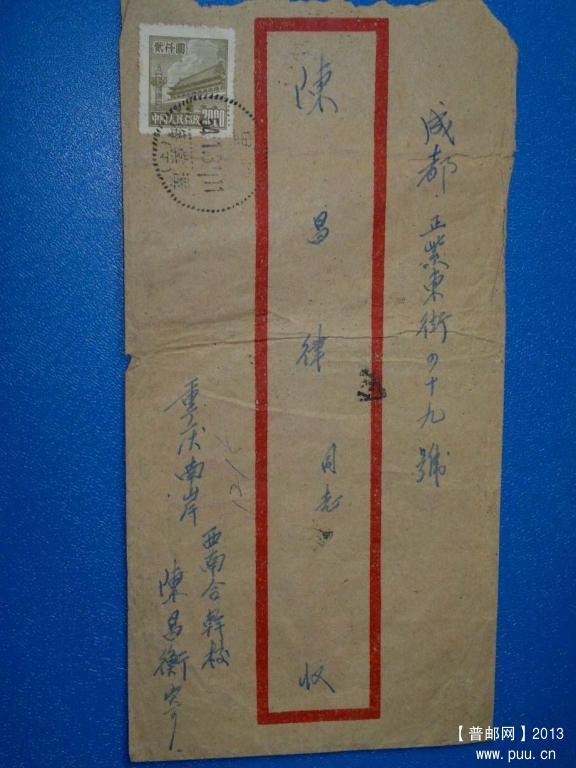 成都·正紫東街四十九號
陳昌律同志收
重庆南岸
西南合幹校
陳昌衡寄
贰仟圓
中国人民邮政
2000
【普邮网】2013
www.puu.cn